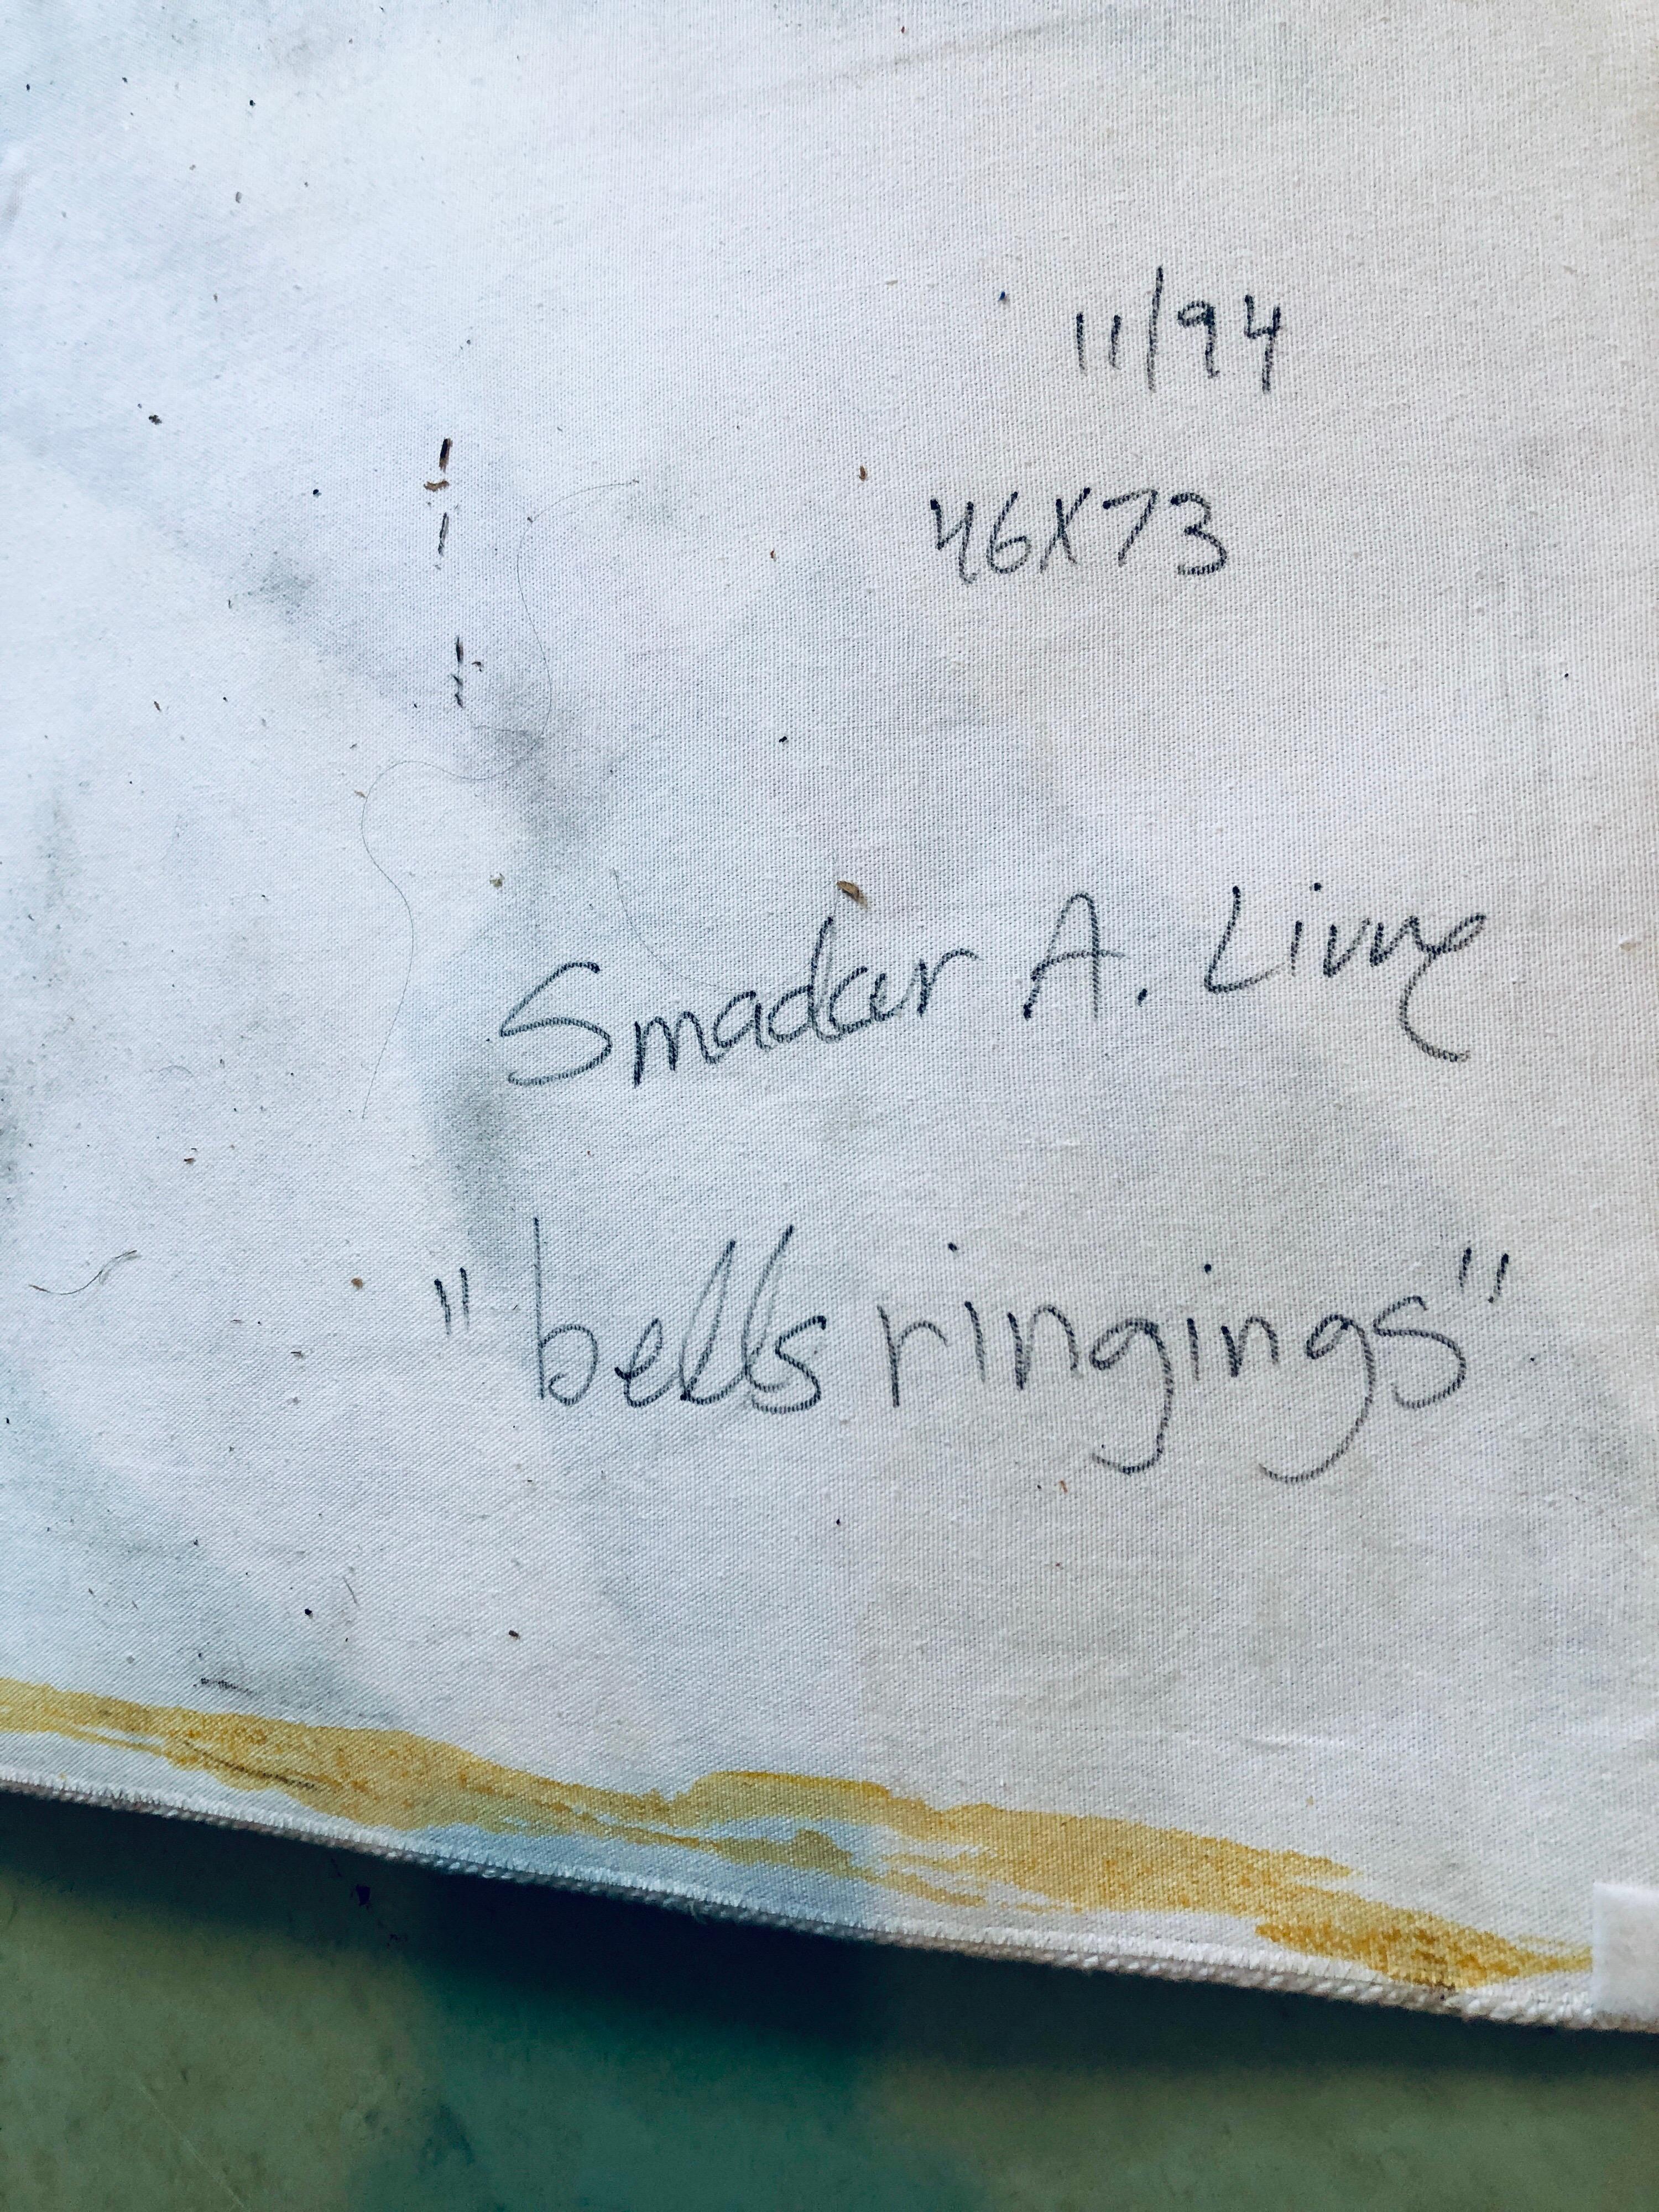 11/94
46X73
Smadar A. Livne
"bells ringings"